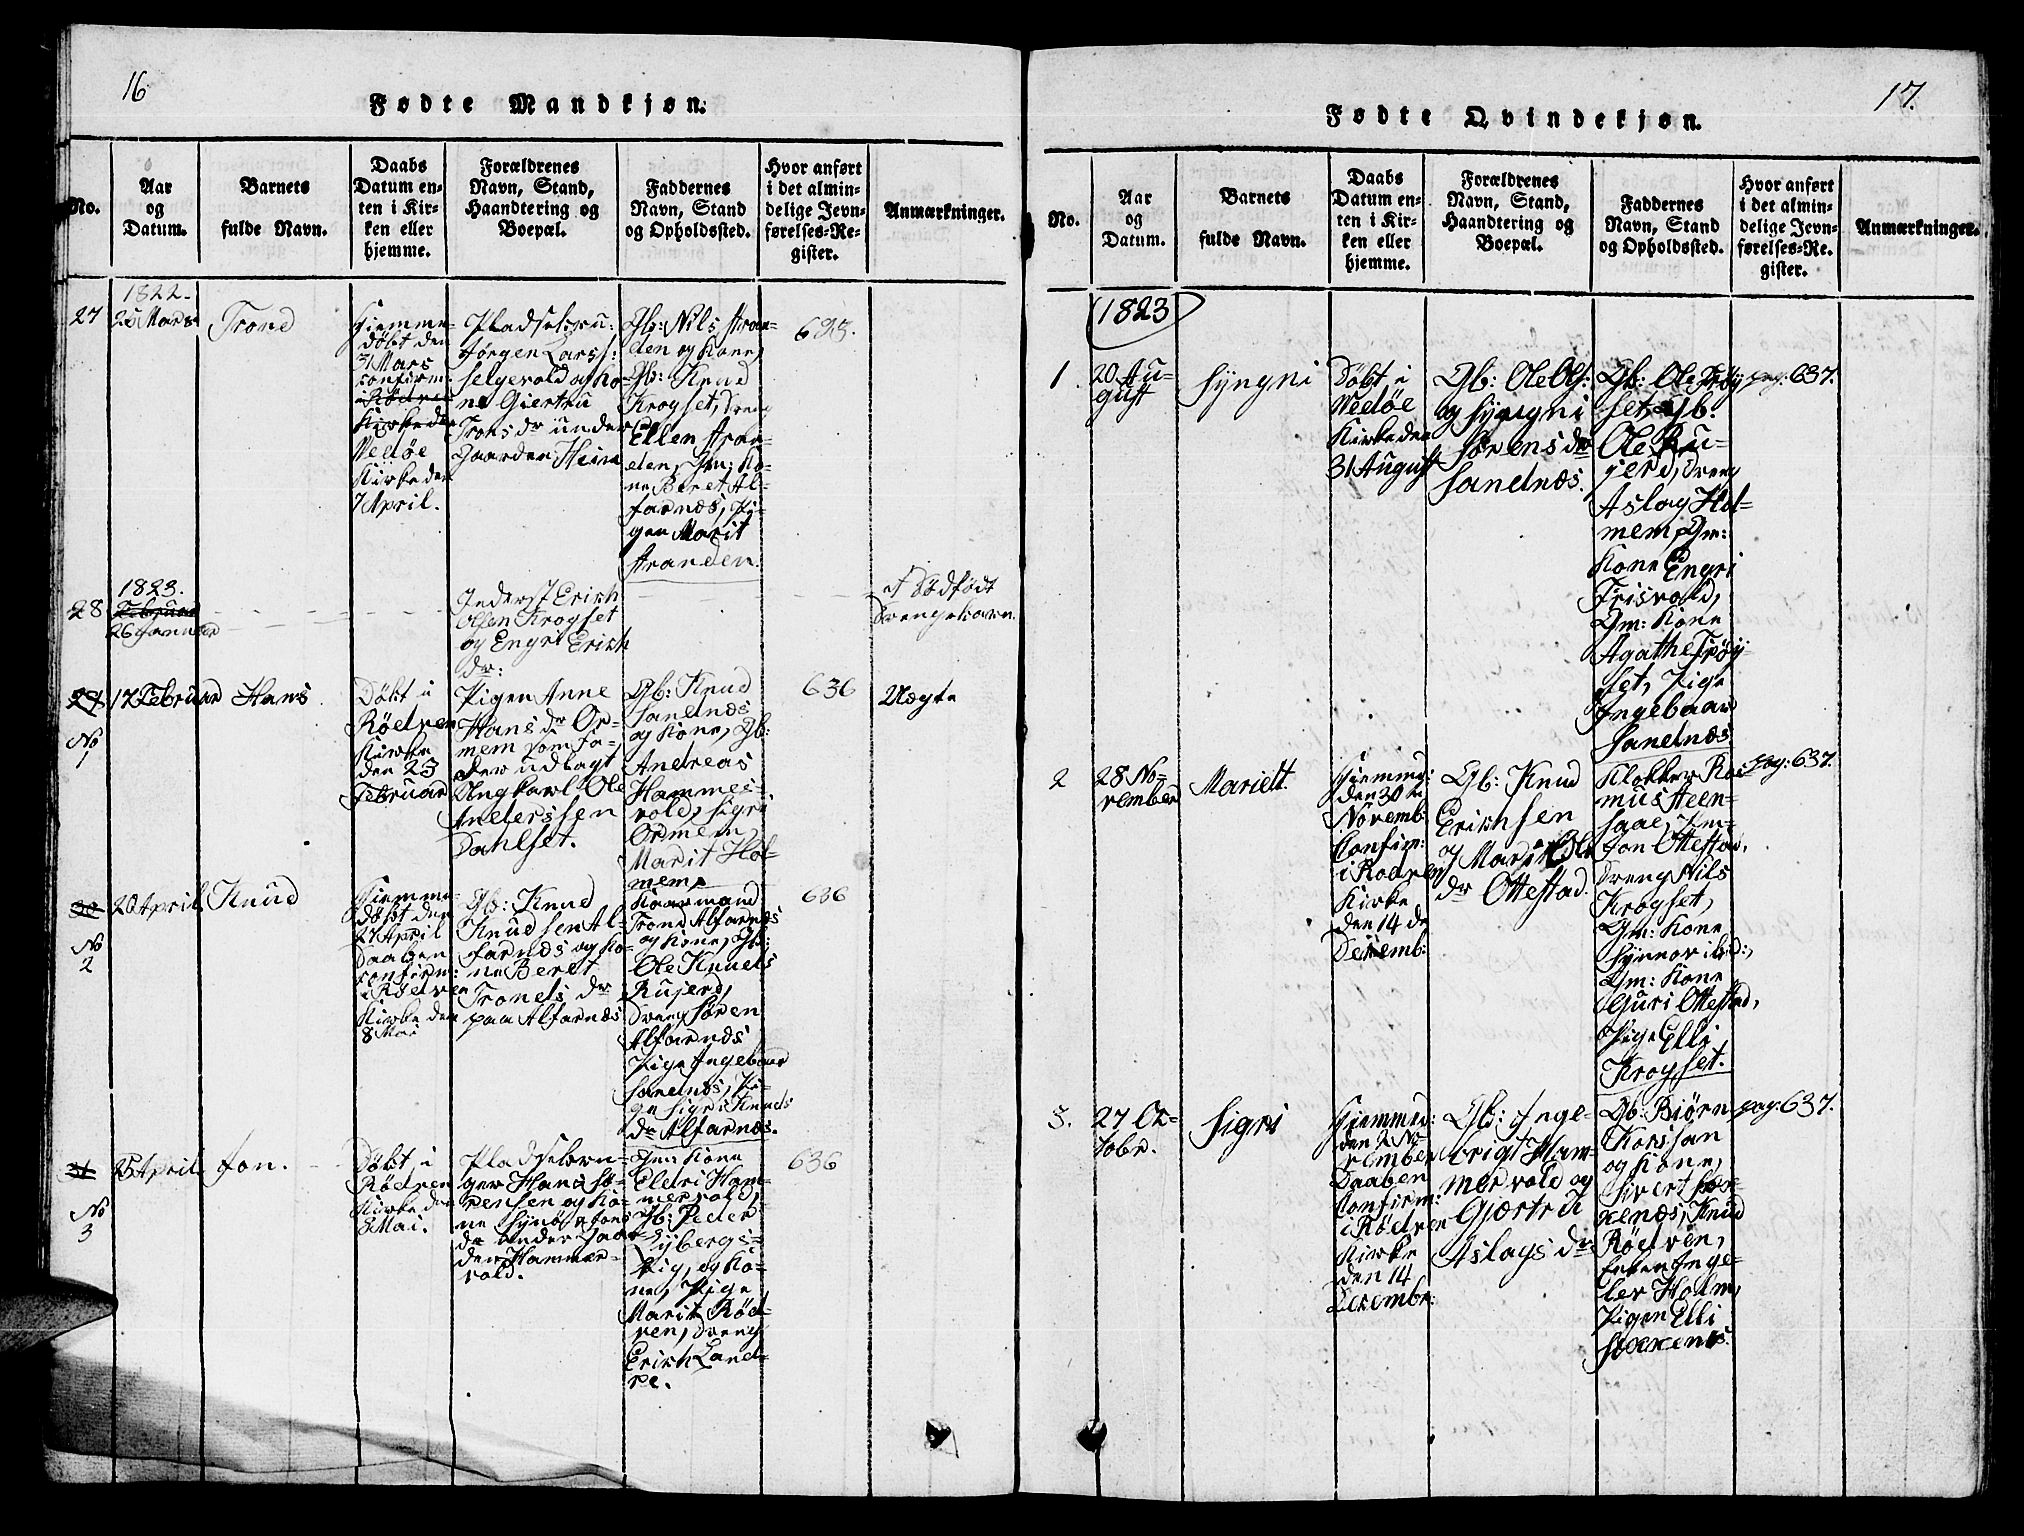 16
Fødte Mandkjøn.
No.
Aar
og
Datum.
Barnets
fulde Navn.
Daabs
Datum en-
ten i Kir-
ken eller
hjemme.
Forældrenes
Navn, Stand,
Haandtering og
Boepæl.
Faddernes
Navn, Stand
og Opholdssted.
Hvor anført
i det almin-
delige Jevn-
førelses-Re-
gister.
Anmærkninger.
27
1822.
25 Mars
Trond
Hjemme-
døbt den
31 Mars
confirm.
i Rødven
Kirke den
Vedøe
Kirke den
7 April.
Jørgen Larss:
Selgevold og Ko-
ne Giertru
Tronsdr under
Gaarden Heim
Gb: Nils Stran-
den og Kone,
Gb: Knud
Krogset, Dreng
Ellen Stran-
den, Gm: Ko-
ne Beret Al-
farnæs, Pi-
gen Marit
Stranden.
625.
28
1823.
Februar
26 Januar
Inderst Erich
Olsen Krogset
og Engri Erich
dr:
Et Dødfødt
Drengebarn.
29
No
1
17 Februar
Hans
Døbt i
Rødven
Kirke
den 23
Februar
Pigen Anne
Hansdr Or-
mem som Fa-
der udlagt
Ungkarl Ole
Anderssen
Dahlset.
Gb: Knud
Sandnæs
og Kone, Gb:
Andreas
Hammer-
vold, Sigri
Ormem,
Marit Hol-
mem,
636
Uægte
30
No
2
20 April
Knud
Hjemme-
døbt den
27 April
Daaben
confirm:
i Rødven
Kirke den
8 Mai
Gb: Knud
Knudsen Al-
farnæs og Ko-
ne Beret
Tronds dr
paa Alfarnæs
Trond Alfarnæs
og Kone, Gb:
Ole Knuds
Rujerd,
Dreng Søren
Alfarnæs
Pige Ingebaar
Sandnæs, Pi-
ge Sigri Knuds
dr Alfarnæs.
636
31
No
3
25 April
Jon.
Døbt i
Rødven
Kirke den
8 Mai.
Pladsebru-
ger Hans Sø-
rensen og Ko-
ne Synøv Jons
dr under Gaar-
den Hammer-
vold.
Gm: Kone
Eldri Ham-
mervold,
Gb: Peder
Nybergs-
vig, og Ko-
ne, Pige
Marit Rød-
ven, Dreng
Erich Land-
re.
636
17.
Fødte Qvindekjøn.
No.
Aar
og
Datum.
Barnets
fulde Navn.
Daabs
Datum en-
ten i Kir-
ken eller
hjemme.
Forældrenes
Navn, Stand,
Haandtering og
Boepæl.
Faddernes
Navn, Stand
og Opholdssted.
Hvor anført
i det almin-
delige Jevn-
førelses-Re-
gister.
Anmærkninger.
1823
1.
20 Au-
gust
Syngni
Døbt i
Vedøe
Kirke den
31 August
Gb: Ole Ols:
og Syngni
Sørens dr
Sandnæs.
Gb: Ole Frøy-
set, Gb.
Ole Ru-
jerd, Dreng
Aslag Hol-
mem, Gm:
Kone Engri
Frisvold,
Gm: Kone
Agathe Frøy-
set, Pige
Ingebaar
Sandnæs
pag: 637.
2
28 No-
vember
Maridt.
Hjemme:
den 30te
Novemb:
Confirm:
i Rødven
Kirke
den 14 de
Decemb:
Gb: Knud
Erichsen
og Marit Ols
dr Ottestad.
Klokker Ras-
mus Steen-
saae,
Jon Ottestad,
Dreng Nils
Krogset,
Gm: Kone
Synnøv ibid:,
Gm: Kone
Guri Ottestad,
Pige Elli
Krogset.
pag: 637.
3.
27 Oc-
tobr.
Sigri
Hjemme:
den 2 No-
vember
Daaben
Confirm:
i Rødven
Kirke
den 14
Decembr:
Gb: Inge-
brigt Ham-
mervold og
Gjærtru
Aslags dr
Gb: Biørn
Korsjan
og Kone,
Sivert Sox-
enæs, Knud
Rødven,
Inge-
lev Holm,
Pigen Elli
Soxenæs.
pag: 637.